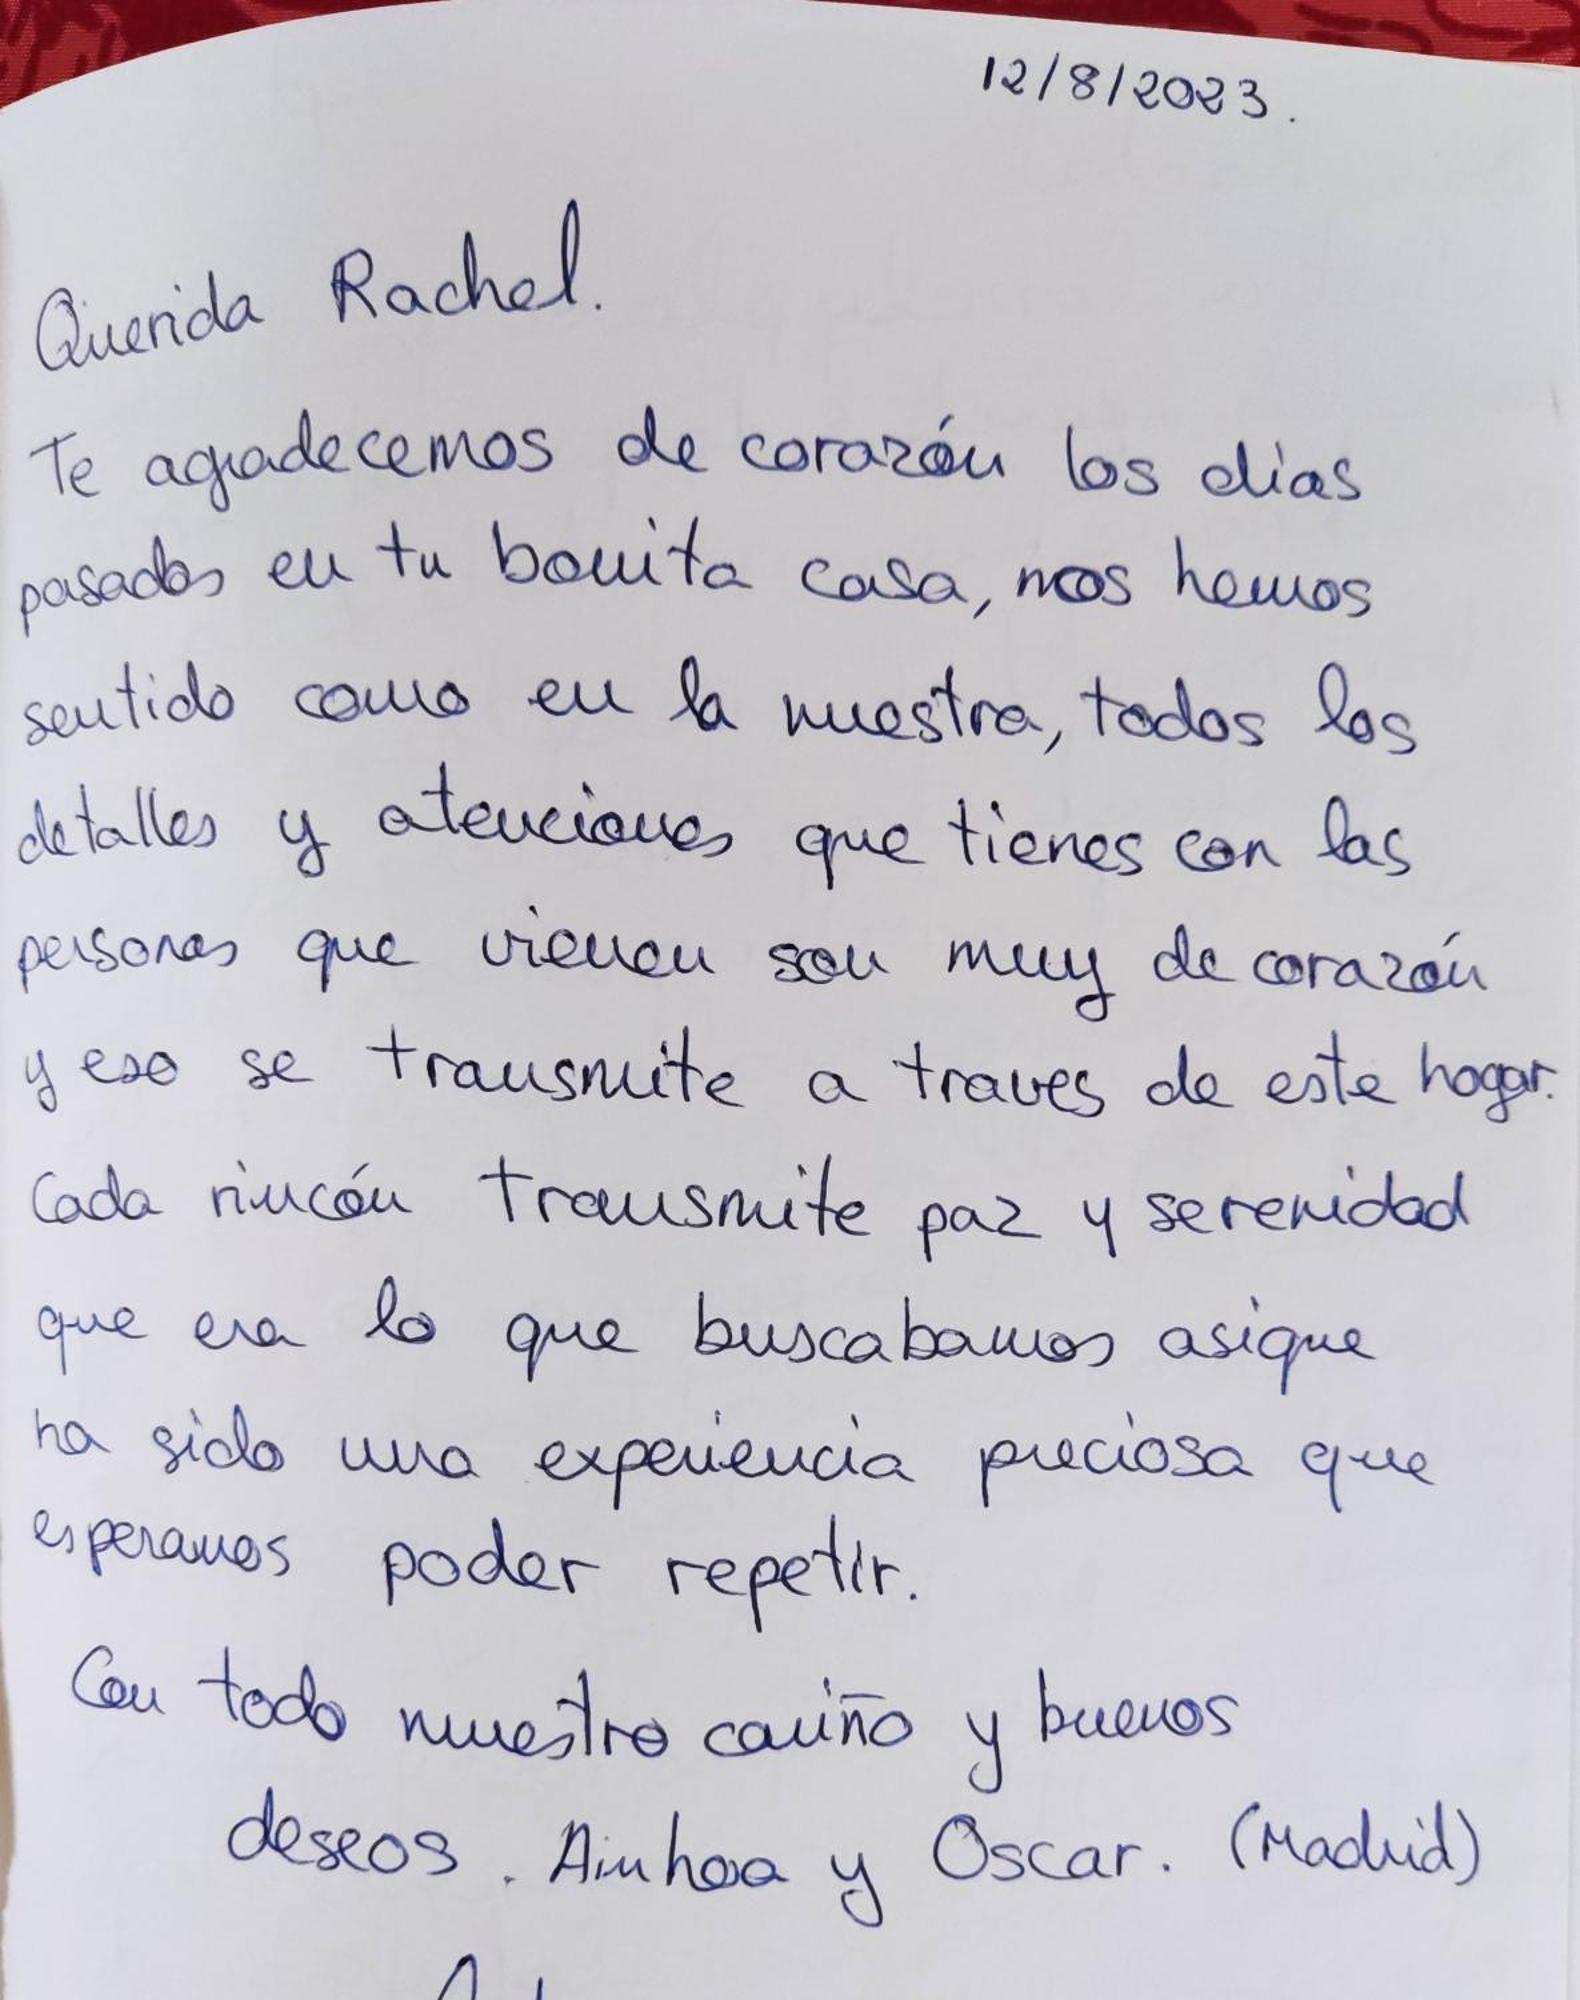 12/8/2023.
Querida Rachel.
Te agradecemos de corazón los días
pasados en tu bonita casa, nos hemos
sentido como en la nuestra, todos los
detalles y atenciones que tienes con las
personas que vienen son muy de corazón
y eso se transmite a traves de este hogar.
Cada rincón transmite paz y serenidad
que era lo que buscabamos asique
ha sido una experiencia preciosa que
esperamos poder repetir.
Con todo nuestro cariño y buenos
deseos. Ainhoa y Oscar. (Madrid)